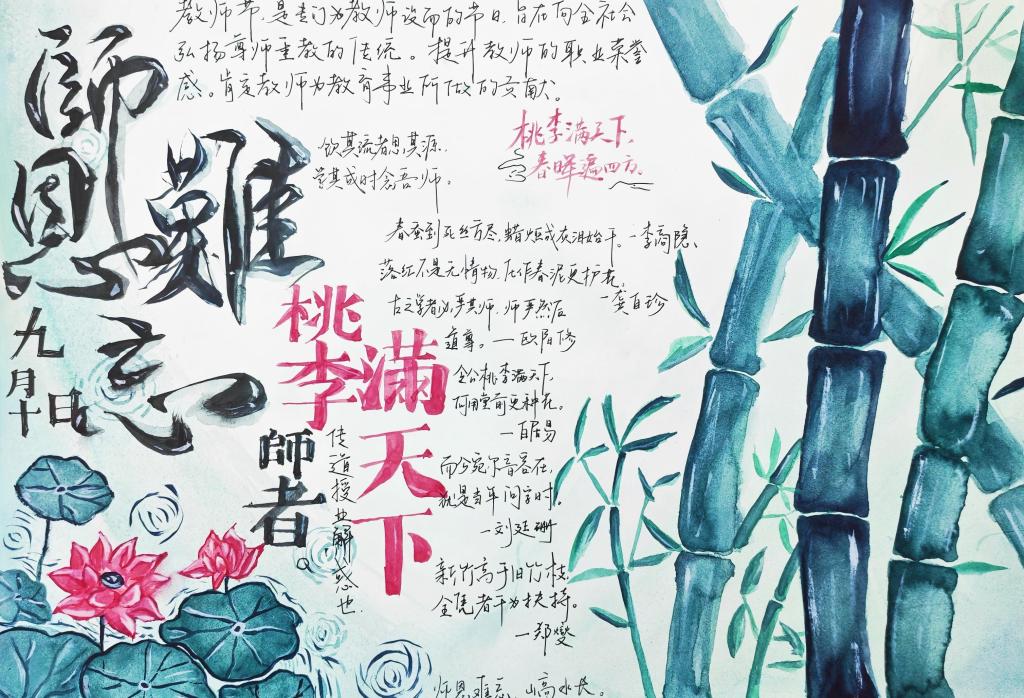 教师节，是专门为教师设而的节日，旨在向全社会
弘扬尊师重教的传统。提升教师的职业荣誉
感。肯定教师为教育事业所做的贡献。
師恩難忘
九月十日
饮其流者思其源，
学其成时念吾师。
桃李满天下，
春晖遍四方。
春蚕到死丝方尽，蜡炬成灰泪始干。—李商隐、
落红不是无情物，化作春泥更护花。
—龚自珍
古之学者必严其师，师严然后
道尊。—欧阳修
桃李
满天下
令公桃李满天下，
何用堂前更种花。
—白居易
師者
传道授业解惑也.
而今宛尔音容在，
就是当年问字时。
—刘廷
新竹高于旧竹枝
全凭老干为扶持。
—郑燮
师恩难忘，山高水长。